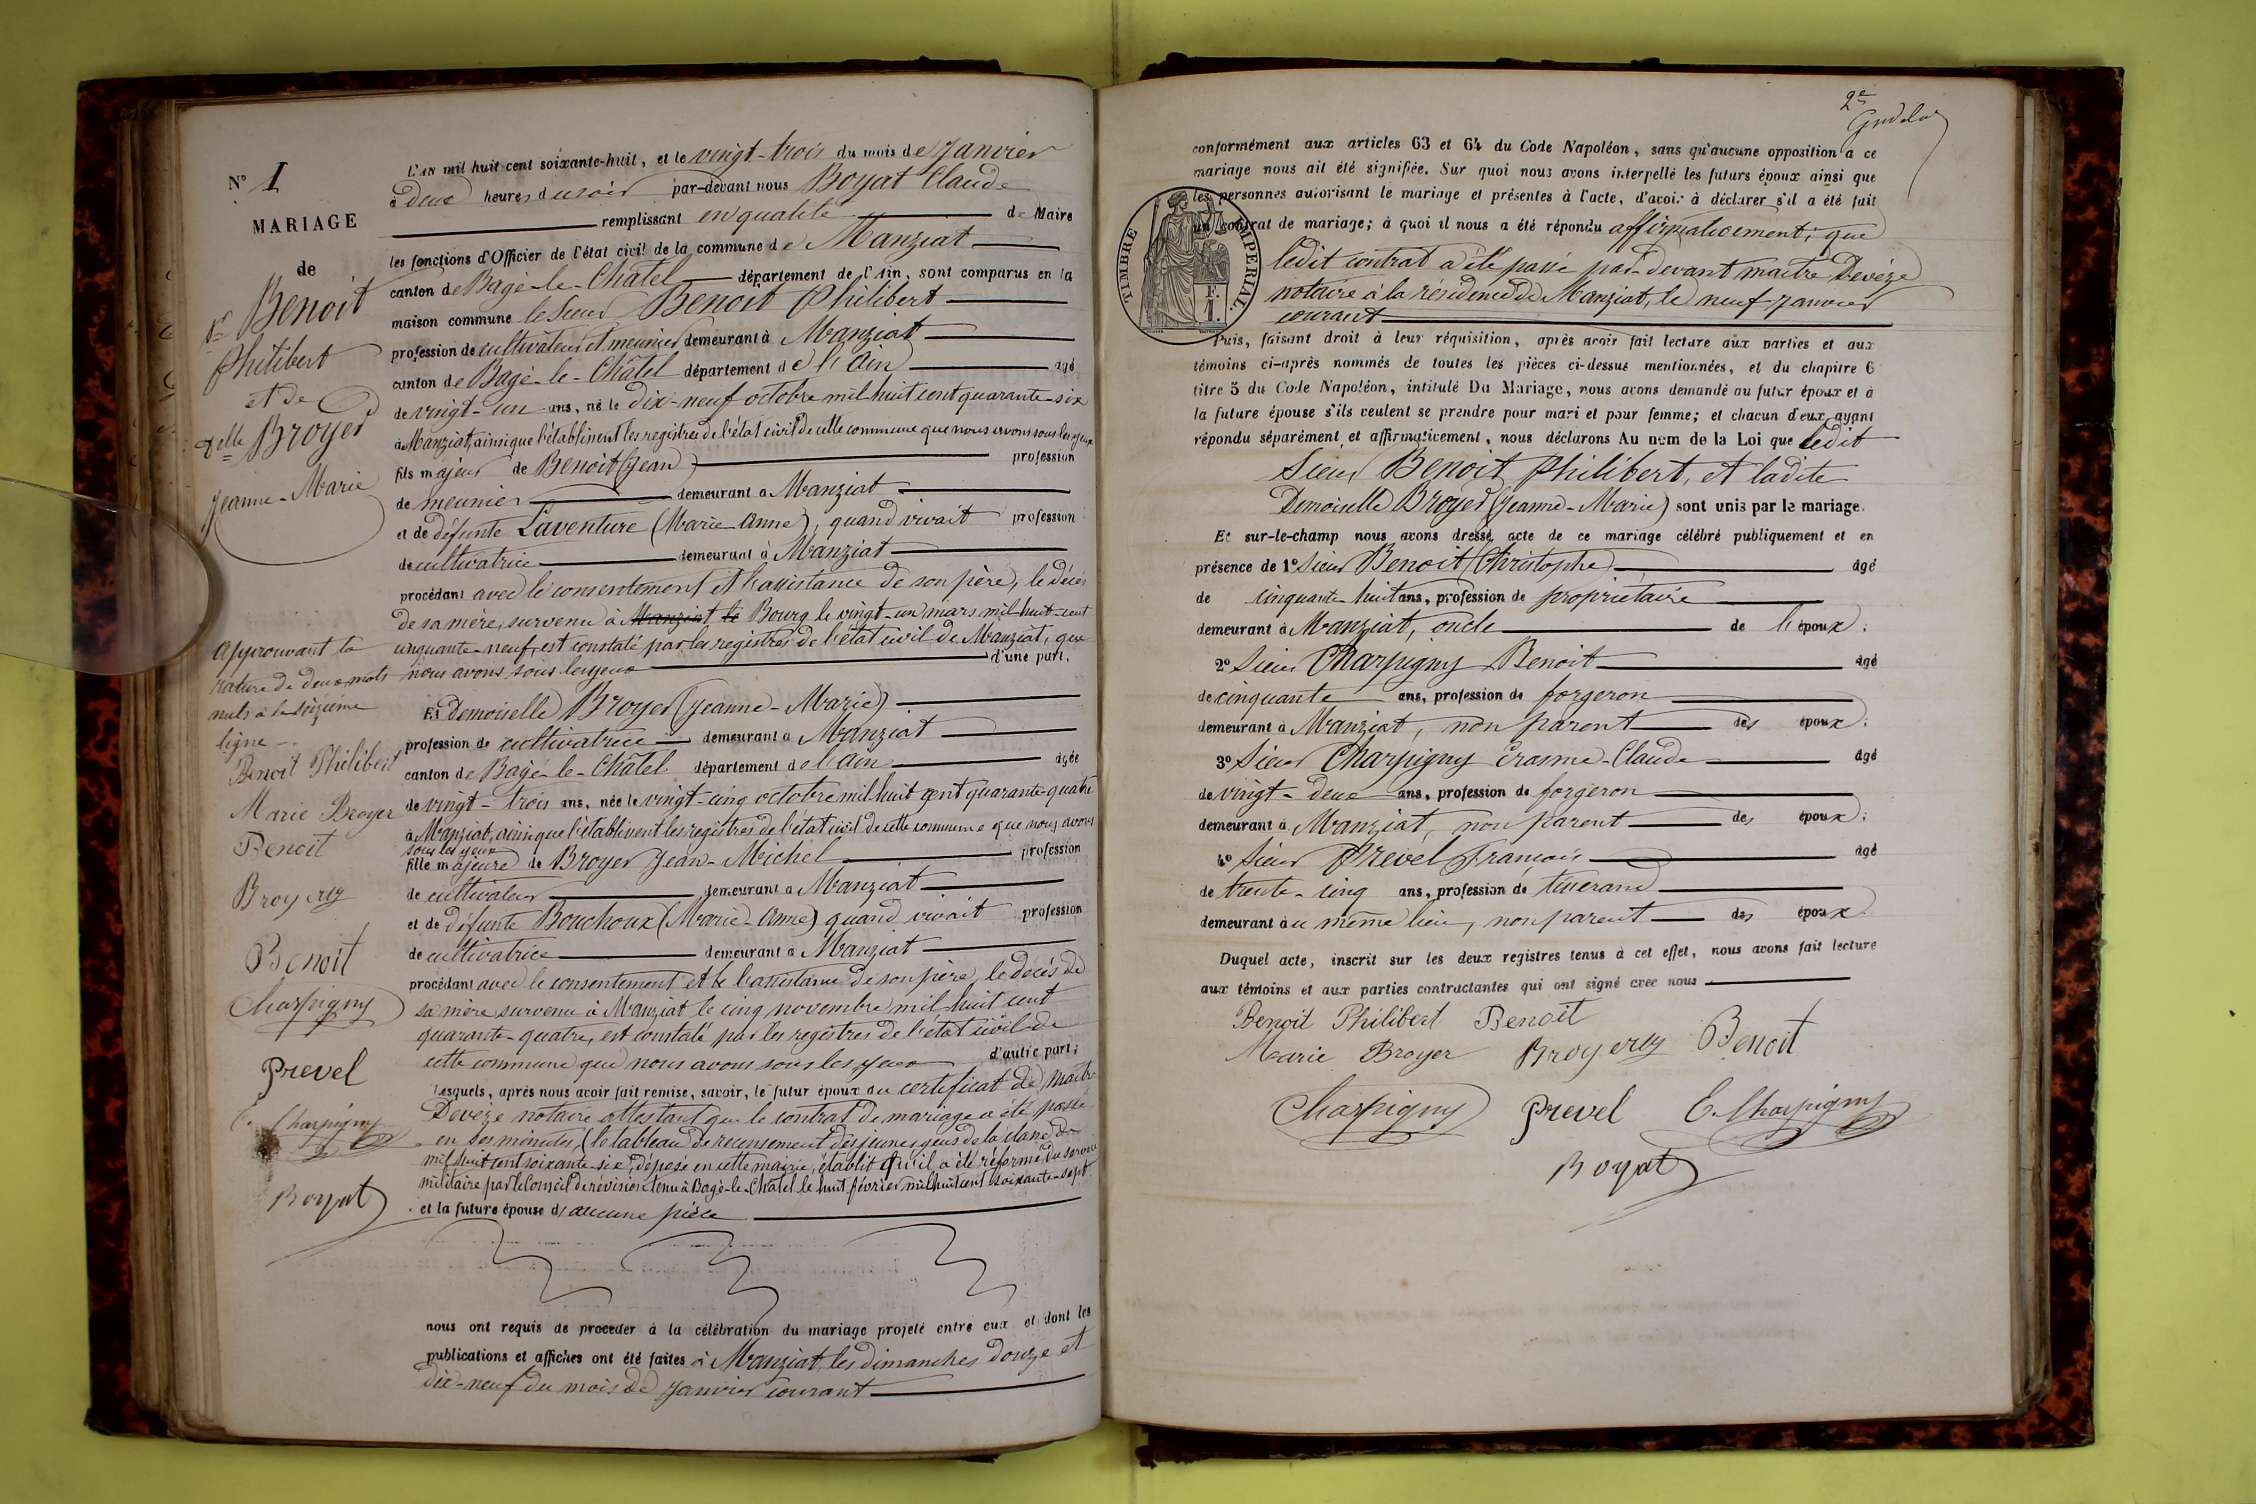 N° 1
MARIAGE
de
Sr Benoit
Philibert
et de
Delle Broyer
Jeanne-Marie
approuvant la
rature de deux mots
nuls à la seizième
ligne -.
Benoit Philibert
Marie Broyer
Benoit
Broyer
Benoit
Charpigny
Prevel
E. Charpigny
Boyat
L'AN mil huit cent soixante-huit, et le vingt-trois du mois de Janvier
à deux heures du soir par-devant nous Boyat Claude
remplissant en qualité de Maire
les fonctions d'Officier de l'état civil de la commune de Manziat
canton de Bagé-le-Châtel département de l'Ain, sont comparus en la
maison commune le Sieur Benoit Philibert
profession de cultivateur et meunier demeurant à Manziat
canton de Bagé-le-Châtel département de l'Ain âgé
de vingt-un ans, né le dix-neuf octobre mil huit cent quarante-six
à Manziat, ainsi que l'établissent les registres de l'état civil de cette commune que nous avons sous les yeux
fils majeur de Benoit (Jean) profession
de meunier demeurant à Manziat
et de défunte Laventure (Marie Anne), quand vivait profession
de cultivatrice demeurant à Manziat
procédant avec le consentement et l'assistance de son père, le décès
de sa mère, survenu à Manziat le Bourg le vingt-un mars mil huit-cent
cinquante-neuf, est constaté par les registres de l'état civil de Manziat, que
nous avons sous les yeux d'une part.
Et demoiselle Broyer (Jeanne-Marie)
profession de cultivatrice demeurant à Manziat
canton de Bagé-le-Châtel département de l'ain âgée
de vingt-trois ans, née le vingt-cinq octobre mil huit cent quarante-quatre
à Manziat, ainsi que l'établissent les registres de l'état civil de cette commune que nous avons
sous les yeux
fille majeure de Broyer Jean-Michel profession
de cultivateur demeurant à Manziat
et de défunte Bouchoux (Marie-Anne) quand vivait profession
de cultivatrice demeurant à Manziat
procédant avec le consentement et l'assistance de son père, le décès de
sa mère survenu à Manziat le cinq novembre mil huit cent
quarante-quatre, est constaté par les registres de l'état civil de
cette commune que nous avons sous les yeux d'autre part;
Lesquels, après nous avoir fait remise, savoir, le futur époux du certificat de Maître
Devèze notaire attestant que le contrat de mariage a été passé
en ses minutes, (le tableau de recensement des jeunes gens de la classe de
mil huit cent soixante-six, déposé en cette mairie, établit qu'il a été réformé du service
militaire par le Conseil de révision tenu à Bagé-le-Châtel le huit février mil huit cent soixante-sept
et la future épouse d'aucune pièce
nous ont requis de procéder à la célébration du mariage projeté entre eux et dont les
publications et affiches ont été faites à Manziat, les dimanches douze et
dix-neuf du mois de Janvier courant
2e
conformément aux articles 63 et 64 du Code Napoléon, sans qu'aucune opposition à ce
mariage nous ait été signifiée. Sur quoi nous avons interpellé les futurs époux ainsi que
les personnes autorisant le mariage et présentes à l'acte, d'avoir à déclarer s'il a été fait
un contrat de mariage; à quoi il nous a été répondu affirmativement, que
TIMBRE IMPERIAL.
F. 1.
ledit contrat a été passé par-devant maître Devèze
notaire à la résidence de Manziat, le neuf Janvier
courant
Puis, faisant droit à leur réquisition, après avoir fait lecture aux parties et aux
témoins ci-après nommés de toutes les pièces ci-dessus mentionnées, et du chapitre 6
titre 5 du Code Napoléon, intitulé Du Mariage, nous avons demandé au futur époux et à
la future épouse s'ils veulent se prendre pour mari et pour femme; et chacun d'eux ayant
répondu séparément et affirmativement, nous déclarons Au nom de la Loi que Ledit
Sieur Benoit Philibert, et ladite
Demoiselle Broyer (Jeanne-Marie) sont unis par le mariage.
Et sur-le-champ nous avons dressé acte de ce mariage célébré publiquement et en
présence de 1° Sieur Benoit (Christophe) âgé
de cinquante-huit ans, profession de propriétaire
demeurant à Manziat, oncle de l'époux;
2° Sieur Charpigny Benoit âgé
de cinquante ans, profession de forgeron
demeurant à Manziat, non parent des époux;
3° Sieur Charpigny Erasme-Claude âgé
de vingt-deux ans, profession de forgeron
demeurant à Manziat, non parent des époux;
4° Sieur Prevel François âgé
de trente-cinq ans, profession de tisserand
demeurant au même lieu, non parent des époux.
Duquel acte, inscrit sur les deux registres tenus à cet effet, nous avons fait lecture
aux témoins et aux parties contractantes qui ont signé avec nous
Benoit Philibert Benoit
Marie Broyer Broyer Benoit
Charpigny Prevel E. Charpigny
Boyat